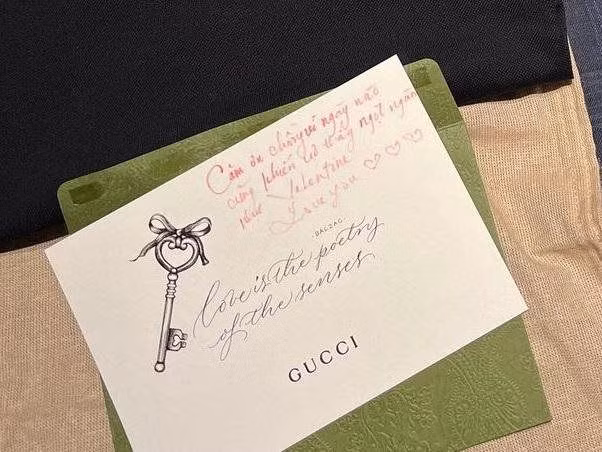 Cảm ơn chồng vì ngày nào
cũng khiến vợ thấy ngọt ngào
như Valentine
Love you ♡ ♡ ♡
- BALZAC -
Love is the poetry
of the senses.
GUCCI